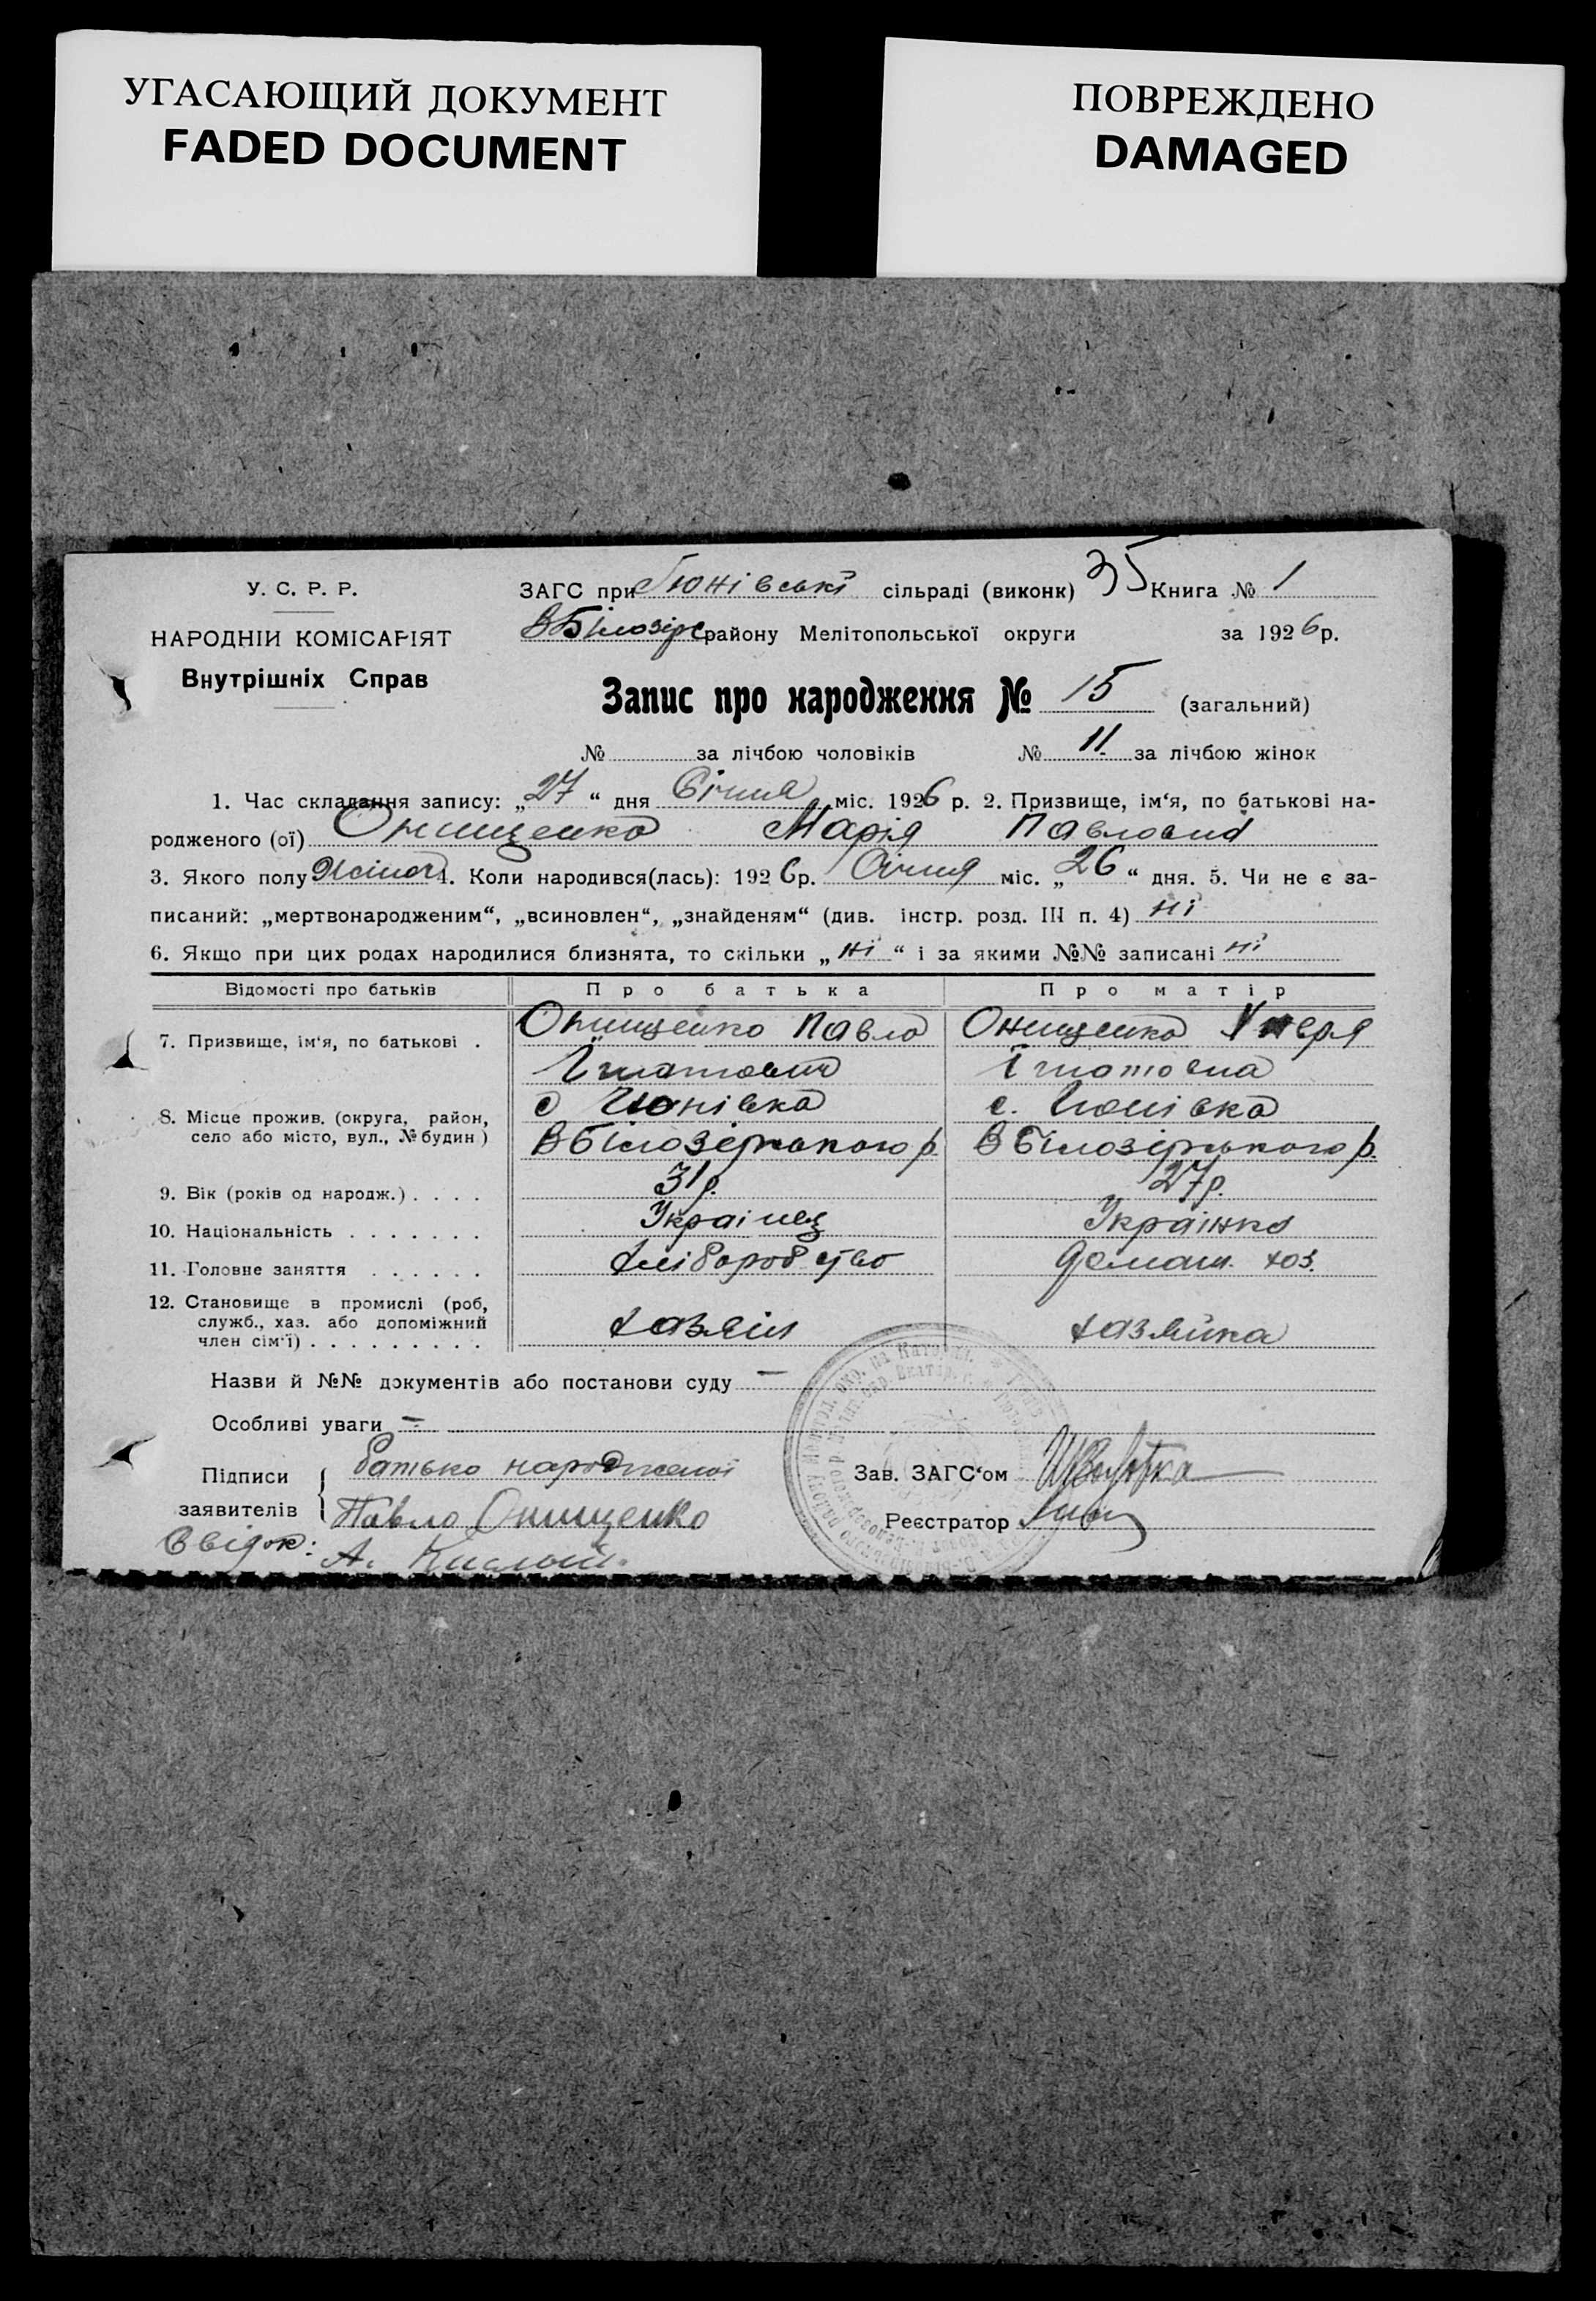 УГАСАЮЩИЙ ДОКУМЕНТ
FADED DOCUMENT
ПОВРЕЖДЕНО
DAMAGED
У. С. Р. Р.
НАРОДНІЙ КОМІСАРІЯТ
Внутрішніх Справ
ЗАГС при Гюнівські сільраді (виконк) 35 Книга № 1
ВБілозірс району Мелітопольської округи за 1926 р.
Запис про народження № 15 (загальний)
№ за лічбою чоловіків № 11 за лічбою жінок
1. Час складання запису: „27“ дня Січня міс. 1926 р. 2. Призвище, ім‘я, по батькові на-
родженого (ої) Онищенко Марія Павловна
3. Якого полу Жіноч 4. Коли народився(лась): 1926 р. Січня міс. „26“ дня. 5. Чи не є за-
писаний: „мертвонародженим“, „всиновлен“, „знайденям“ (див. інстр. розд. III п. 4) ні
6. Якщо при цих родах народилися близнята, то скільки „ні“ і за якими №№ записані ні
Відомості про батьків Про батька Про матір
7. Призвище, ім‘я, по батькові . Онищенко Павло Онищенко
Ігнатович Ігнатовна
8. Місце прожив. (округа, район, с Гюнівка с. Гюнівка
село або місто, вул., № будин) ВБілозірського р. ВБілозірського р.
9. Вік (років од народж.) . . . . 31 р. 27 р.
10. Національність . . . . . . . Українец Українка
11. Головне заняття . . . . . . Хліборобство Домаш. хоз.
12. Становище в промислі (роб,
служб., хаз. або допоміжний хазяін хазяйка
член сім‘ї) . . . . . . . . .
Назви й №№ документів або постанови суду —
Особливі уваги —
Підписи батько народженої
заявителів Павло Онищенко
Зав. ЗАГС‘ом
Реєстратор
Свідок: А. Кислый